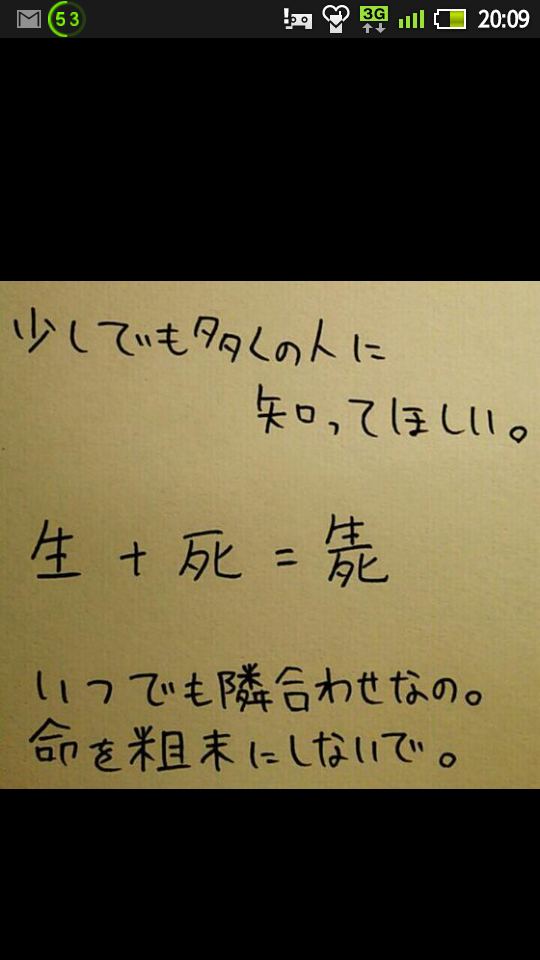 53 3G 20:09
少しでも多くの人に
知ってほしい。
生 + 死 = 毙
いつでも隣合わせなの。
命を粗末にしないで。